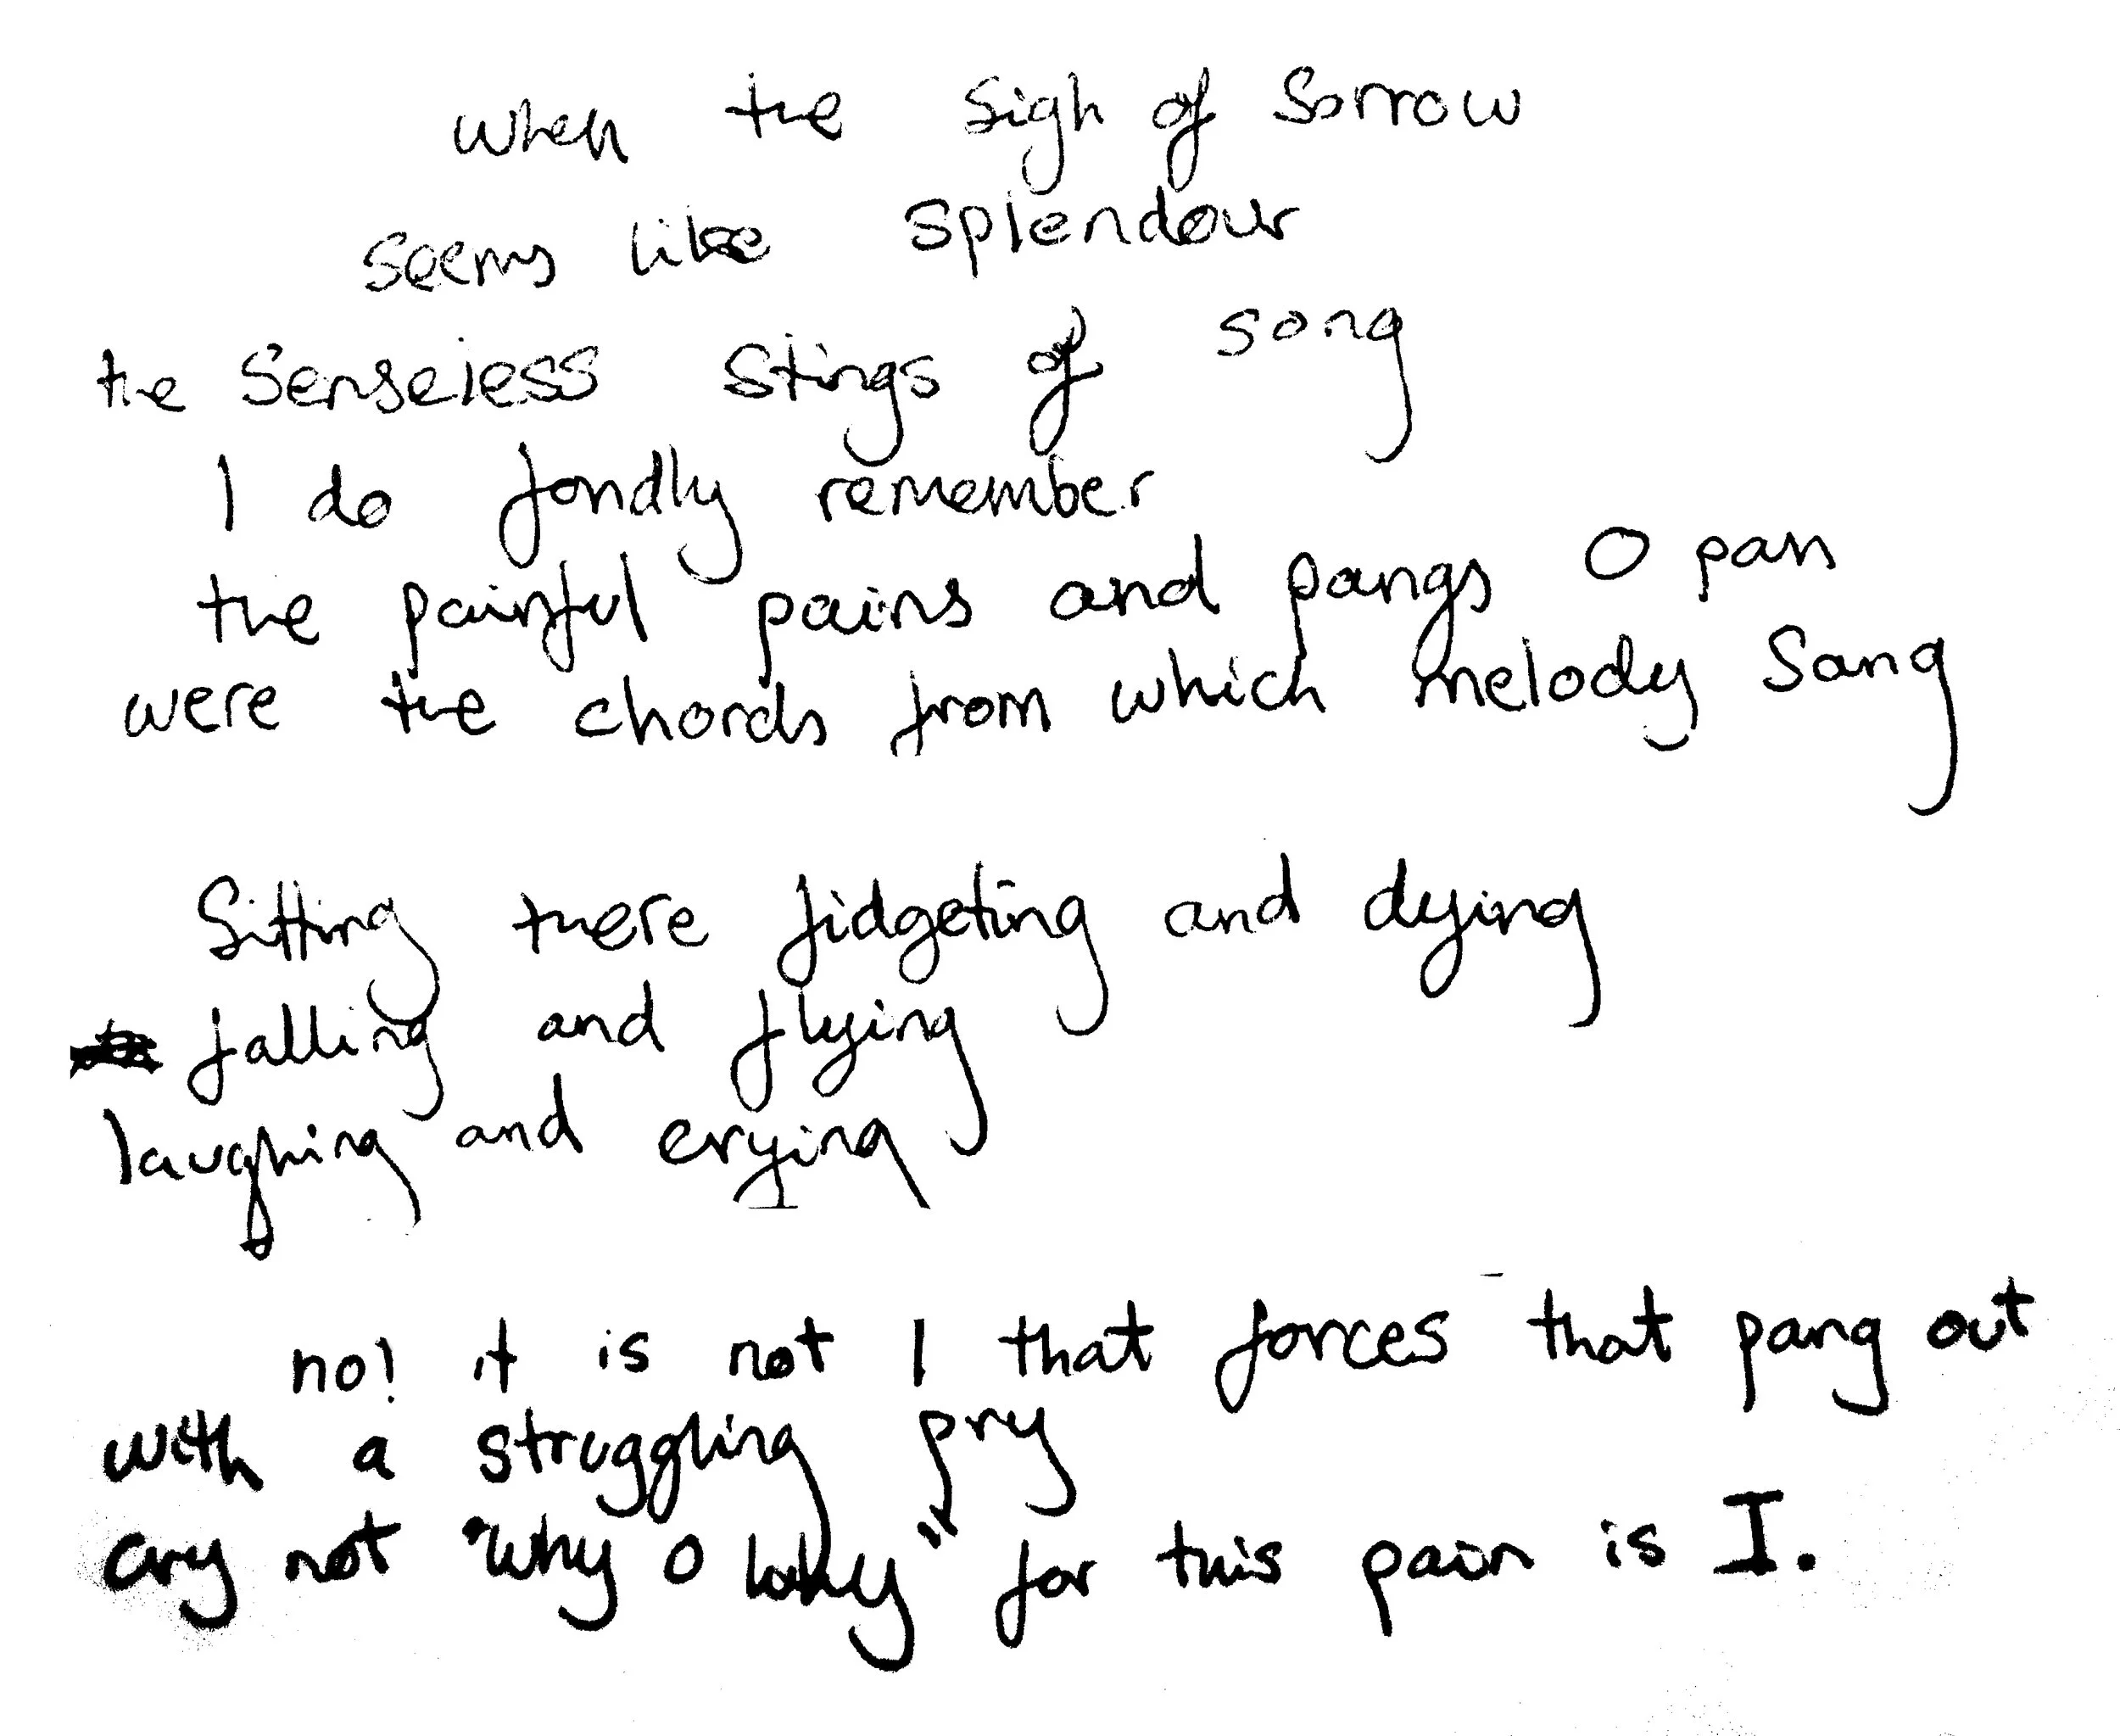 when the sigh of sorrow
seems like splendour
the senseless stings of song
I do fondly remember
the painful pains and pangs O pan
were the chords from which melody sang
Sitting there fidgeting and dying
falling and flying
laughing and crying
no! it is not I that forces that pang out
with a struggling pry
cry not "why O why" for this pain is I.